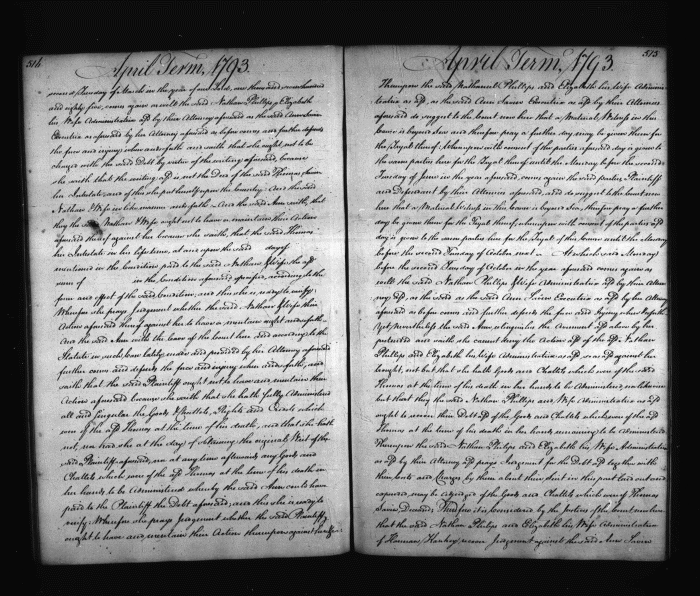 514
April Term, 1793.
second Tuesday of March in the year of our Lord, one thousand seven hundred
and eighty five, comes again as well the said Nathan Phillips & Elizabeth
his Wife Administration aforesaid by their Attorney aforesaid as the said Ann
Executrix as aforesaid by her Attorney aforesaid as before comes and further defends
the force and injury when and so forth and saith, that she ought not to be
charged with the said Debt by virtue of the writing aforesaid, because
she saith, that the writing aforesaid is not the Deed of the said Thomas
her Intestate, and of this she puts herself upon the Country. And the said
Nathan & Wife in like manner and so forth. And the said Ann saith, that
they the said Nathan & Wife ought not to have or maintain their Action
aforesaid thereof against her because she saith, that the said Thomas
her Intestate in his life time, at and upon the said day of
mentioned in the Condition paid to the said Nathan & Wife the
sum of in the Condition aforesaid specified, according to the
form and effect of the said Condition, and this she is ready to verify;
Wherefore she prays Judgement whether the said Nathan & Wife their
Action aforesaid thereof against her to have or maintain ought and so forth.
And the said Ann with the leave of the Court here and according to the
Statute in such case lately made and provided by her Attorney aforesaid
further comes and defends the force and injury when and so forth, and
saith that the said Plaintiffs ought not to have or maintain their
Action aforesaid because she saith that she hath fully Administered
all and singular the Goods & Chattels, Rights and Credits which
were of the said Thomas at the time of his death, and that she hath
not, nor had she at the day of obtaining the original Writ of the
said Plaintiffs aforesaid, nor at any time afterwards any Goods and
Chattels which were of the said Thomas at the time of his death in
her hands to be Administered whereby the said Ann could have
paid to the Plaintiffs the Debt aforesaid, and this she is ready to
verify. Wherefore she prays Judgement whether the said Plaintiffs
ought to have and maintain their Action thereupon against her
515
April Term, 1793.
Thereupon the said Nathaniel Phillips and Elizabeth his Wife Adminis-
tration as aforesaid, as the said Ann Executrix as aforesaid by their Attornies
aforesaid do suggest to the Court now here that a Material Witness in this
Cause is beyond Sea and therefore pray a further day may be given them for
the Tryal thereof, whereupon with consent of the parties aforesaid day is given to
the same parties here for the Tryal thereof until the Monday before the second
Tuesday of June in the year aforesaid, comes again the said parties Plaintiffs
and Defendant by their Attornies aforesaid, and do suggest to the Court now
here that a Material Witness in this Cause is beyond Sea, therefore pray a further
day be given them for the Tryal thereof, whereupon with consent of the parties
day is given to the same parties here for the Tryal of this Cause until the Monday
before the second Tuesday of October next. At which said Monday
before the second Tuesday of October in the year aforesaid comes again as
well the said Nathan Phillips & Wife Administration by their Attor-
ney as the said Ann Executrix as aforesaid by her Attorney
aforesaid as before comes and further defends the force and injury when & so forth
And the said Ann
protested and saith she cannot deny the Action aforesaid of the said Nathan
Phillips and Elizabeth his Wife Administration as aforesaid against her
brought, nor but that she hath Goods and Chattels which were of the said
Thomas at the time of his death in her hands to be Administered,
but that they the said Nathan Phillips and Wife Administration as
ought to recover their Debt of the Goods and Chattels which were of the said
Thomas at the time of his death in her hands remaining to be Administered
Thereupon the said Nathan Phillips and Elizabeth his Wife Administration
as aforesaid by their Attorney prays Judgement for the Debt together with
their Costs and Charges by them about their Suit in this part laid out and
expended, may be adjudged of the Goods and Chattels which were of Thomas
Deceased. Therefore it is considered by the Justices of the Court now here
that the said Nathan Phillips and Elizabeth his Wife Administration
of recover Judgement against the said Ann